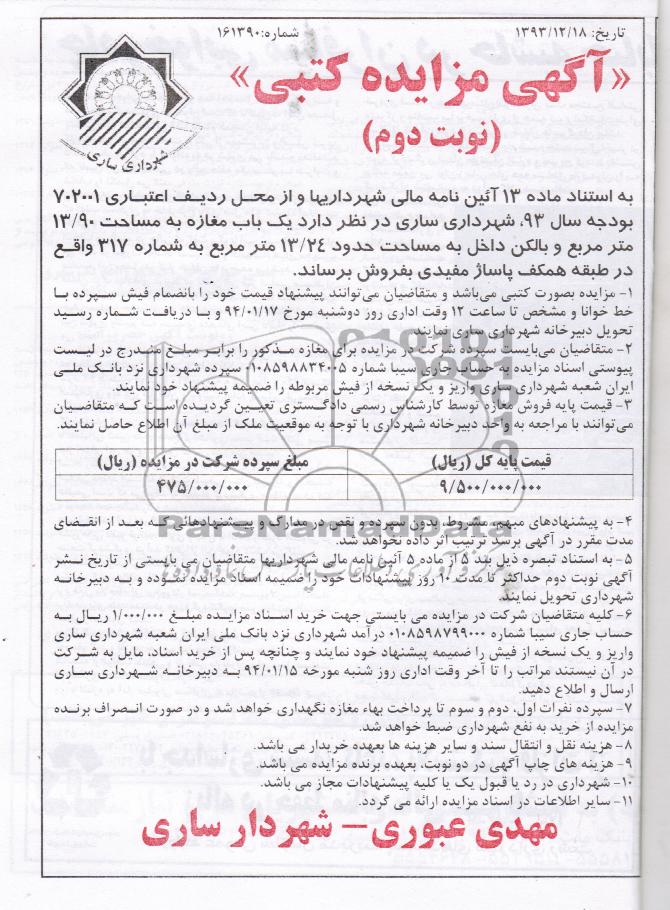 تاریخ: ۱۳۹۳/۱۲/۱۸
شماره: ۱۶۱۳۹۰
شهرداری ساری
«آگهی مزایده کتبی»
(نوبت دوم)
به استناد ماده ۱۳ آئین نامه مالی شهرداریها و از محل ردیف اعتباری ۷۰۲۰۰۱
بودجه سال ۹۳، شهرداری ساری در نظر دارد یک باب مغازه به مساحت ۱۳/۹۰
متر مربع و بالکن داخل به مساحت حدود ۱۳/۲۴ متر مربع به شماره ۳۱۷ واقع
در طبقه همکف پاساژ مفیدی بفروش برساند.
۱- مزایده بصورت کتبی می‌باشد و متقاضیان می‌توانند پیشنهاد قیمت خود را بانضمام فیش سپرده با
خط خوانا و مشخص تا ساعت ۱۲ وقت اداری روز دوشنبه مورخ ۹۴/۰۱/۱۷ و با دریافت شماره رسید
تحویل دبیرخانه شهرداری ساری نمایند.
۲- متقاضیان می‌بایست سپرده شرکت در مزایده برای مغازه مذکور را برابر مبلغ مندرج در لیست
پیوستی اسناد مزایده به حساب جاری سیبا شماره ۰۱۰۸۵۹۸۸۳۴۰۰۵ سپرده شهرداری نزد بانک ملی
ایران شعبه شهرداری ساری واریز و یک نسخه از فیش مربوطه را ضمیمه پیشنهاد خود نمایند.
۳- قیمت پایه فروش مغازه توسط کارشناس رسمی دادگستری تعیین گردیده است که متقاضیان
می‌توانند با مراجعه به واحد دبیرخانه شهرداری با توجه به موقعیت ملک از مبلغ آن اطلاع حاصل نمایند.
قیمت پایه کل (ریال) مبلغ سپرده شرکت در مزایده (ریال)
۹/۵۰۰/۰۰۰/۰۰۰ ۴۷۵/۰۰۰/۰۰۰
ParsNamadData
۴- به پیشنهادهای مبهم، مشروط، بدون سپرده و نقص در مدارک و پیشنهادهائی که بعد از انقضای
مدت مقرر در آگهی برسد ترتیب اثر داده نخواهد شد.
۵- به استناد تبصره ذیل بند ۵ از ماده ۵ آئین نامه مالی شهرداریها متقاضیان می بایستی از تاریخ نشر
آگهی نوبت دوم حداکثر تا مدت ۱۰ روز پیشنهادات خود را ضمیمه اسناد مزایده نموده و به دبیرخانه
شهرداری تحویل نمایند.
۶- کلیه متقاضیان شرکت در مزایده می بایستی جهت خرید اسناد مزایده مبلغ ۱/۰۰۰/۰۰۰ ریال به
حساب جاری سیبا شماره ۰۱۰۸۵۹۸۷۹۹۰۰۰ درآمد شهرداری نزد بانک ملی ایران شعبه شهرداری ساری
واریز و یک نسخه از فیش را ضمیمه پیشنهاد خود نمایند و چنانچه پس از خرید اسناد، مایل به شرکت
در آن نیستند مراتب را تا آخر وقت اداری روز شنبه مورخه ۹۴/۰۱/۱۵ به دبیرخانه شهرداری ساری
ارسال و اطلاع دهید.
۷- سپرده نفرات اول، دوم و سوم تا پرداخت بهاء مغازه نگهداری خواهد شد و در صورت انصراف برنده
مزایده از خرید به نفع شهرداری ضبط خواهد شد.
۸- هزینه نقل و انتقال سند و سایر هزینه ها بعهده خریدار می باشد.
۹- هزینه های چاپ آگهی در دو نوبت، بعهده برنده مزایده می باشد.
۱۰- شهرداری در رد یا قبول یک یا کلیه پیشنهادات مجاز می باشد.
۱۱- سایر اطلاعات در اسناد مزایده ارائه می گردد.
مهدی عبوری- شهردار ساری